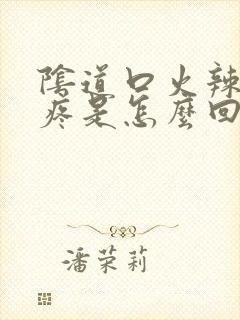 陰道口火辣
疼是怎麼回
潘荣莉